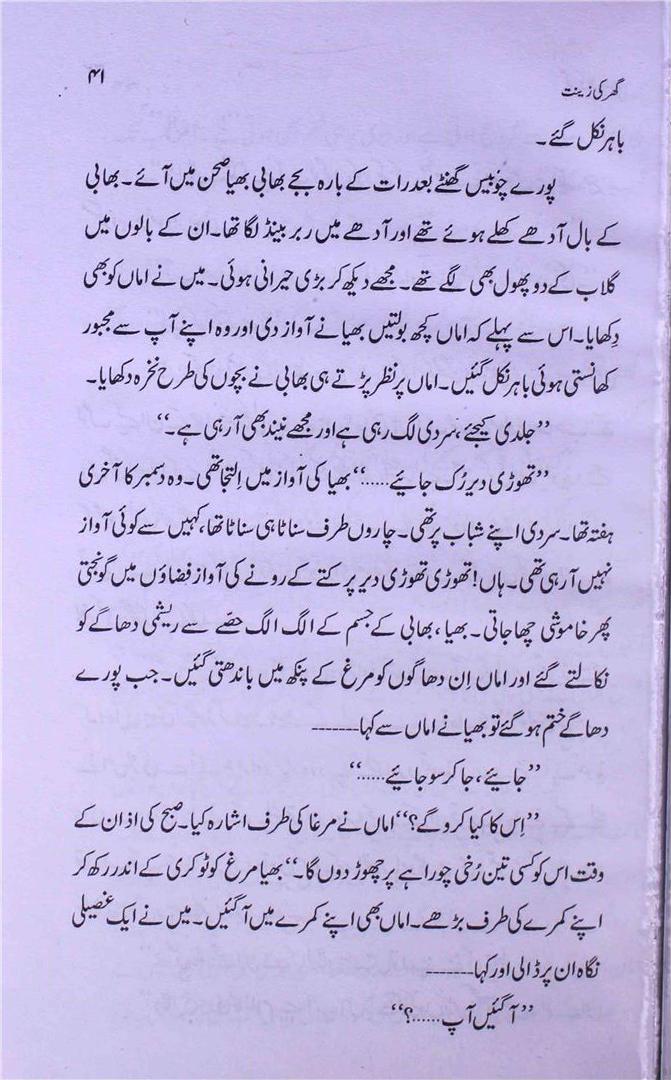 ۴۱
گھر کی زینت
باہر نکل گئے۔
پورے چوبیس گھنٹے بعد رات کے بارہ بجے بھابی بھیا صحن میں آئے۔ بھابی
کے بال آدھے کھلے ہوئے تھے اور آدھے میں ربر بینڈ لگا تھا۔ ان کے بالوں میں
گلاب کے دو پھول بھی لگے تھے۔ مجھے دیکھ کر بڑی حیرانی ہوئی۔ میں نے اماں کو بھی
دِکھایا۔ اس سے پہلے کہ اماں کچھ بولتیں بھیا نے آواز دی اور وہ اپنے آپ سے مجبور
کھانستی ہوئی باہر نکل گئیں۔ اماں پر نظر پڑتے ہی بھابی نے بچوں کی طرح نخرہ دکھایا۔
”جلدی کیجئے، سردی لگ رہی ہے اور مجھے نیند بھی آرہی ہے۔“
”تھوڑی دیر رُک جائیے.....“ بھیا کی آواز میں اِلتجا تھی۔ وہ دسمبر کا آخری
ہفتہ تھا۔ سردی اپنے شباب پر تھی۔ چاروں طرف سناٹا ہی سناٹا تھا، کہیں سے کوئی آواز
نہیں آرہی تھی۔ ہاں! تھوڑی تھوڑی دیر پر کتے کے رونے کی آواز فضاؤں میں گونجتی
پھر خاموشی چھا جاتی۔ بھیا، بھابی کے جسم کے الگ الگ حصّے سے ریشمی دھاگے کو
نکالتے گئے اور اماں اِن دھاگوں کو مرغ کے پنکھ میں باندھتی گئیں۔ جب پورے
دھاگے ختم ہو گئے تو بھیا نے اماں سے کہا-------
”جائیے، جا کر سو جائیے.....“
”اِس کا کیا کرو گے؟“ اماں نے مرغا کی طرف اشارہ کیا۔ صبح کی اذان کے
وقت اس کو کسی تین رُخی چوراہے پر چھوڑ دوں گا۔“ بھیا مرغ کو ٹوکری کے اندر رکھ کر
اپنے کمرے کی طرف بڑھے۔ اماں بھی اپنے کمرے میں آگئیں۔ میں نے ایک غصیلی
نگاہ ان پر ڈالی اور کہا-------
”آگئیں آپ......؟“